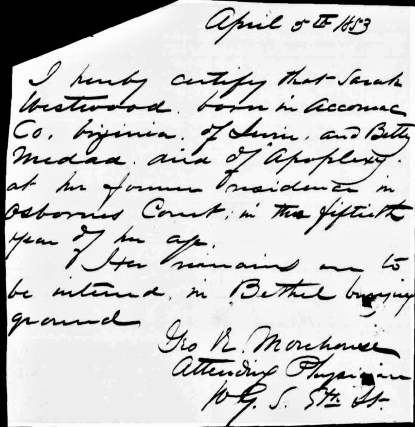 April 5th 1853
I hereby certify that Sarah
Westwood. born in Accomac
Co. Virginia. of Levin. and Betty
Medad. died of Apoplexy.
at her former residence in
Osbornes Court; in the fiftieth
year of her age.
Her remains are to
be interred, in Bethel burying
ground
Geo R. Morehouse
Attending Physician
S. 5th St.